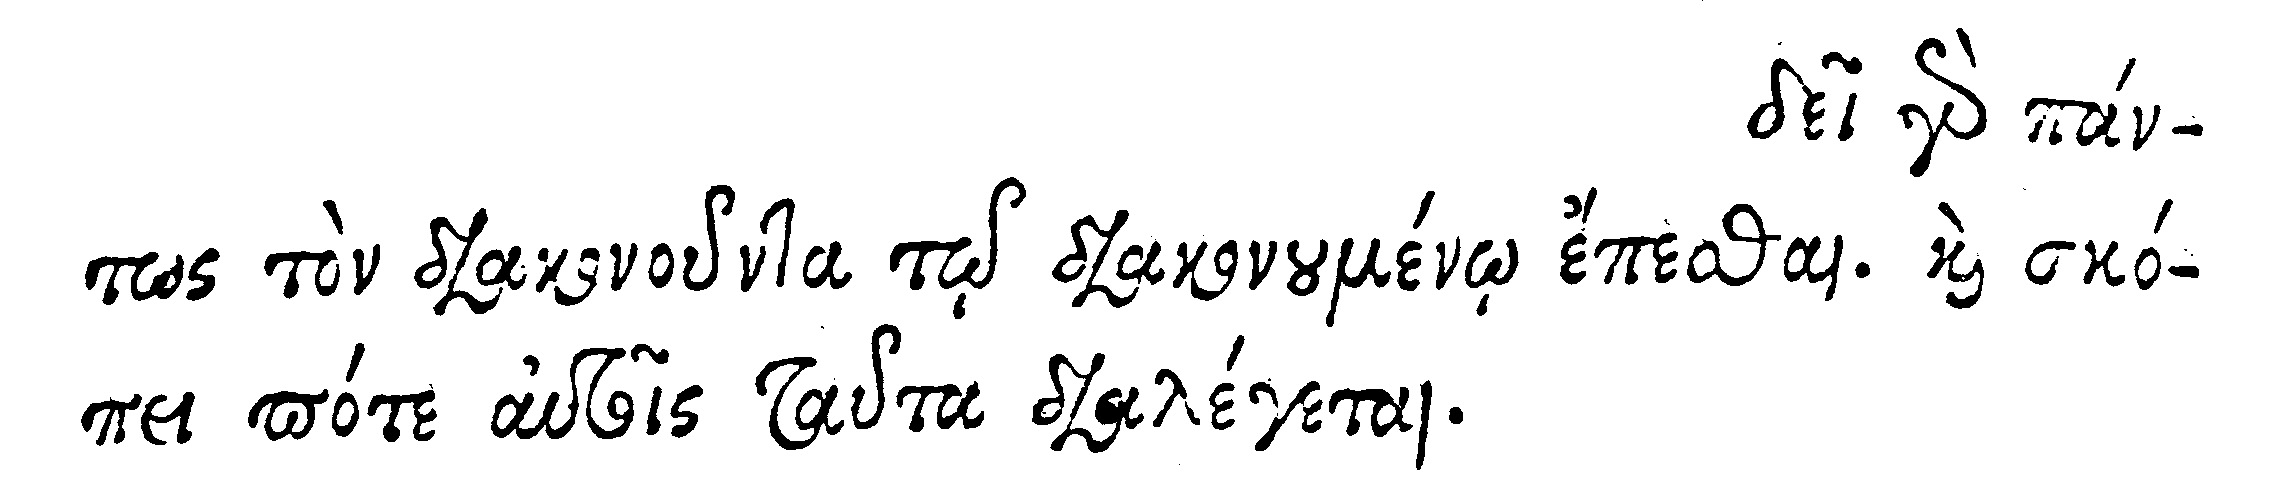 δεῖ γὰρ πάν-
τως τὸν διακονοῦντα τῷ διακονουμένῳ ἔπεσθαι. καὶ σκό-
πει πότε αὐτοῖς ταῦτα διαλέγεται.